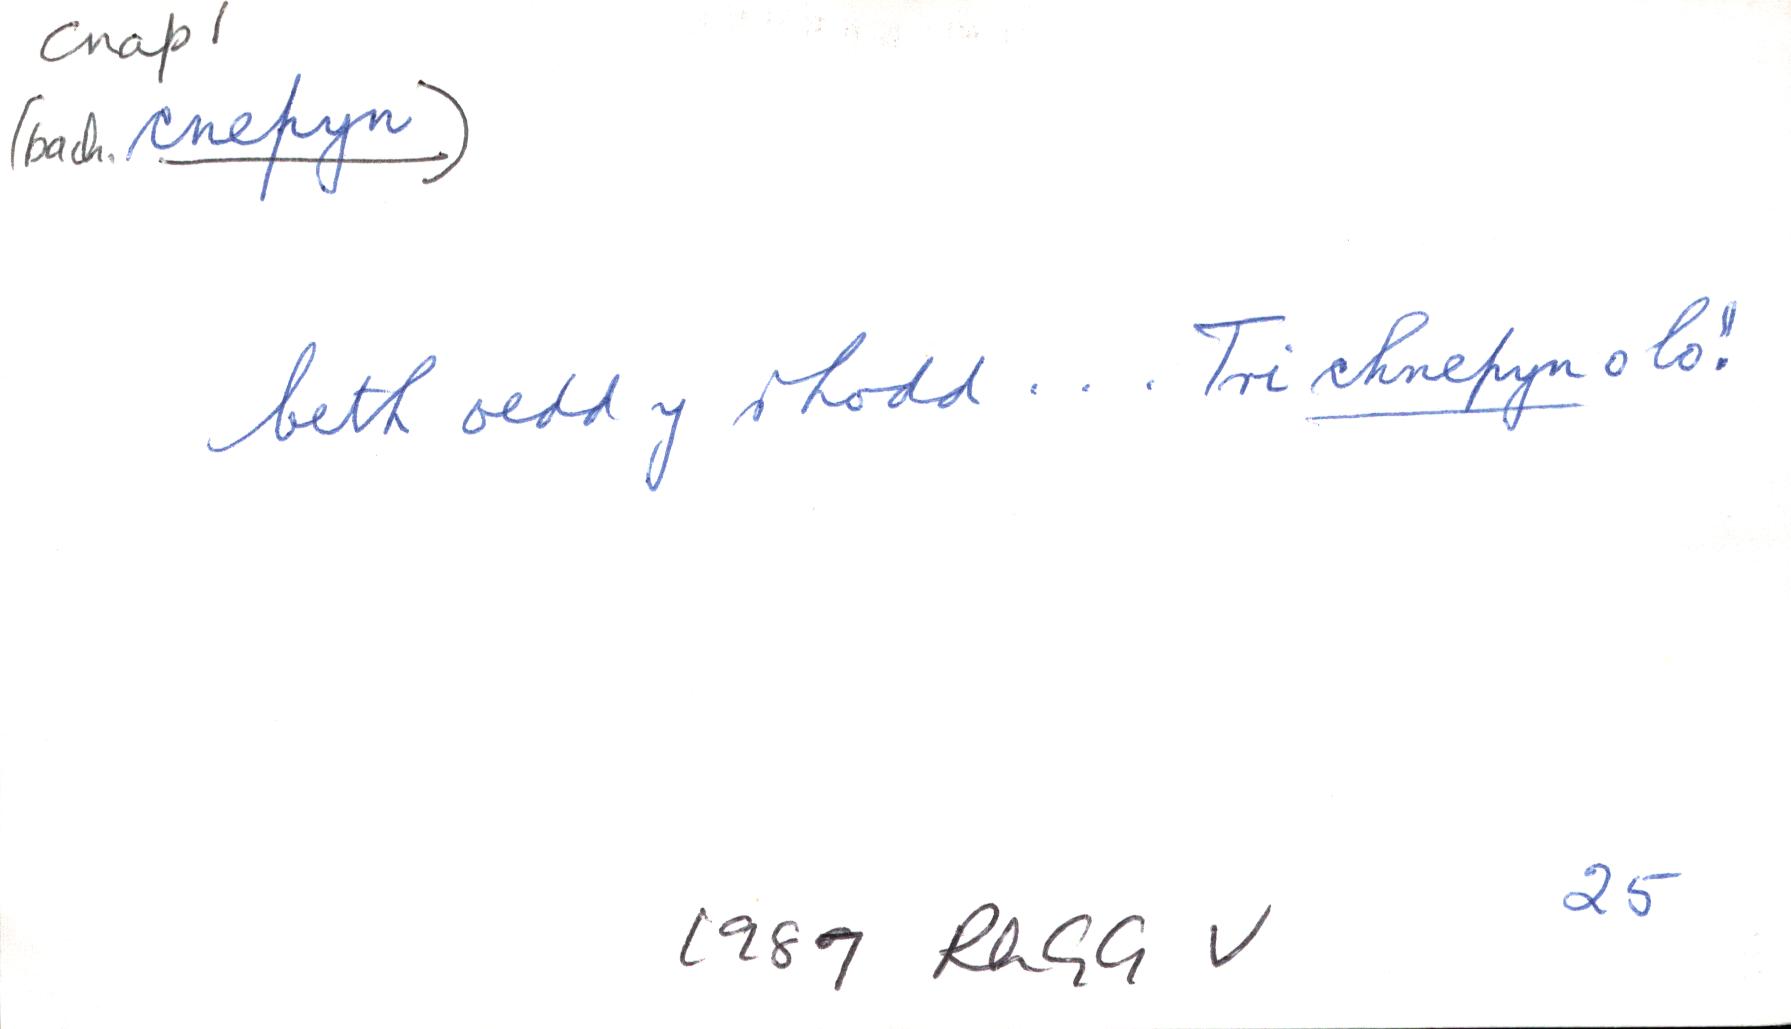 cnap¹
(bach. cnepyn)
beth oedd y rhodd . . . Tri chnepyn o lo!!
25
1989 RhGG V